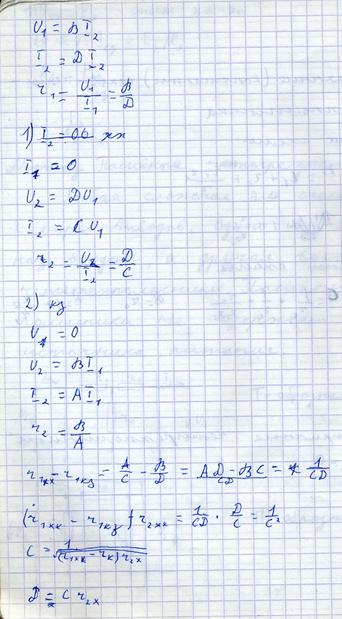 U₁ = B I₂
I₂ = D I₂
r₁ = U₁/I₁ = B/D
1) I₂ = 0 хх
I₁ = 0
U₂ = D U₁
I₂ = C U₁
r₂ = U₂/I₂ = D/C
2) кз
U₁ = 0
U₂ = B I₁
I₂ = A I₁
r₂ = B/A
r₁хх - r₁кз = A/C - B/D = (AD - BC)/CD = 1/CD
(r₁хх - r₁кз) r₂хх = 1/CD · D/C = 1/C²
C = 1/√((r₁хх - rк) r₂х)
D = C r₂х